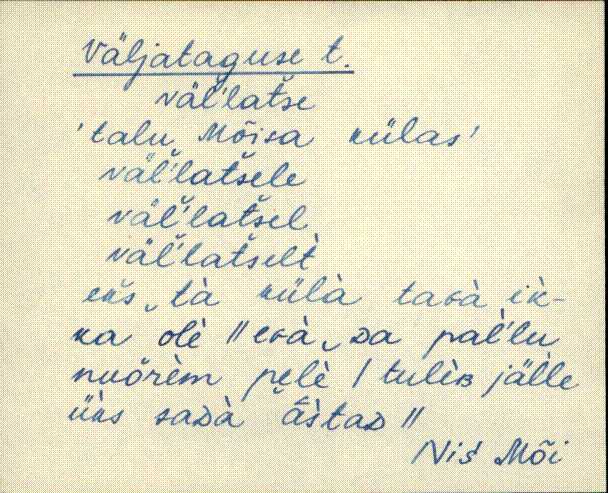 Väljataguse t.
väl'latše
'talu Mõisa külas'
väl'latšele
väl'latšel
väl'latšelt
eks tà külà tagà ik-
ka olè || egà da pal'lu
nuõrèm pelè | tulèB jälle
üks sadà āstaD ||
Nis Mõi